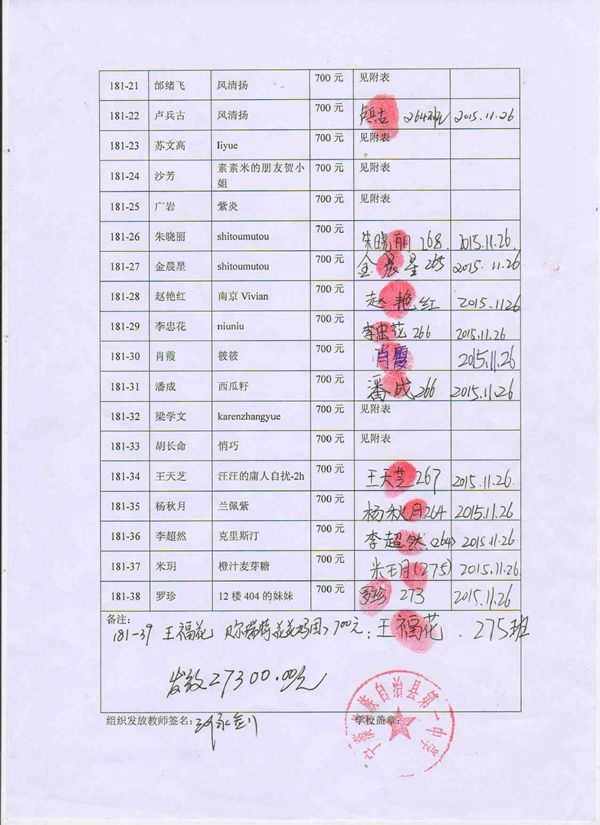 181-21 邰绪飞 风清扬 700 元 见附表
181-22 卢兵古 风清扬 700 元 卢兵古 264班 2015.11.26
181-23 苏文高 liyue 700 元 见附表
181-24 沙芳 素素米的朋友贺小姐 700 元 见附表
181-25 广岩 紫炎 700 元 见附表
181-26 朱晓丽 shitoumutou 700 元 朱晓丽 268 2015.11.26
181-27 金晨星 shitoumutou 700 元 金晨星 265 2015.11.26
181-28 赵艳红 南京 Vivian 700 元 赵艳红 2015.11.26
181-29 李忠花 niuniu 700 元 李忠花 266 2015.11.26
181-30 肖霞 筱筱 700 元 肖霞 2015.11.26
181-31 潘成 西瓜籽 700 元 潘成 266 2015.11.26
181-32 梁学文 karenzhangyue 700 元 见附表
181-33 胡长命 悄巧 700 元 见附表
181-34 王天芝 汪汪的庸人自扰-2h 700 元 王天芝 267 2015.11.26
181-35 杨秋月 兰佩紫 700 元 杨秋月 264 2015.11.26
181-36 李超然 克里斯汀 700 元 李超然 (264) 2015.11.26
181-37 米玥 橙汁麦芽糖 700 元 米玥 (275) 2015.11.26
181-38 罗珍 12 楼 404 的妹妹 700 元 罗珍 273 2015.11.26
备注:
181-39 王福花 700元: 王福花. 275班
发放27300.00元
组织发放教师签名: 学校盖章:
族自治县第一中学